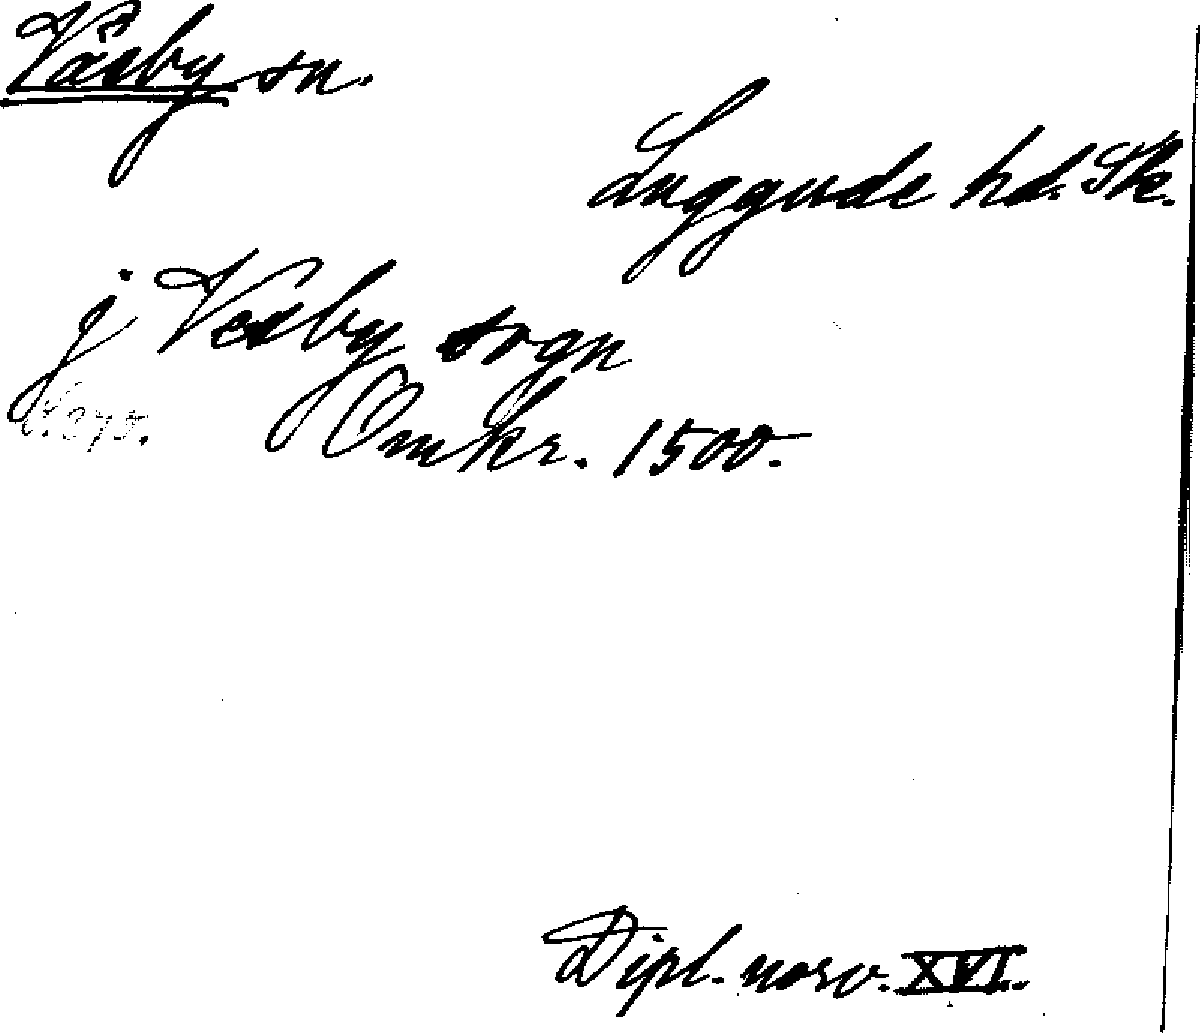 Väsby sn.
Luggude hd. Sk.
j Vesby sogn
Omkr. 1500.
Dipl. norv. XVI.